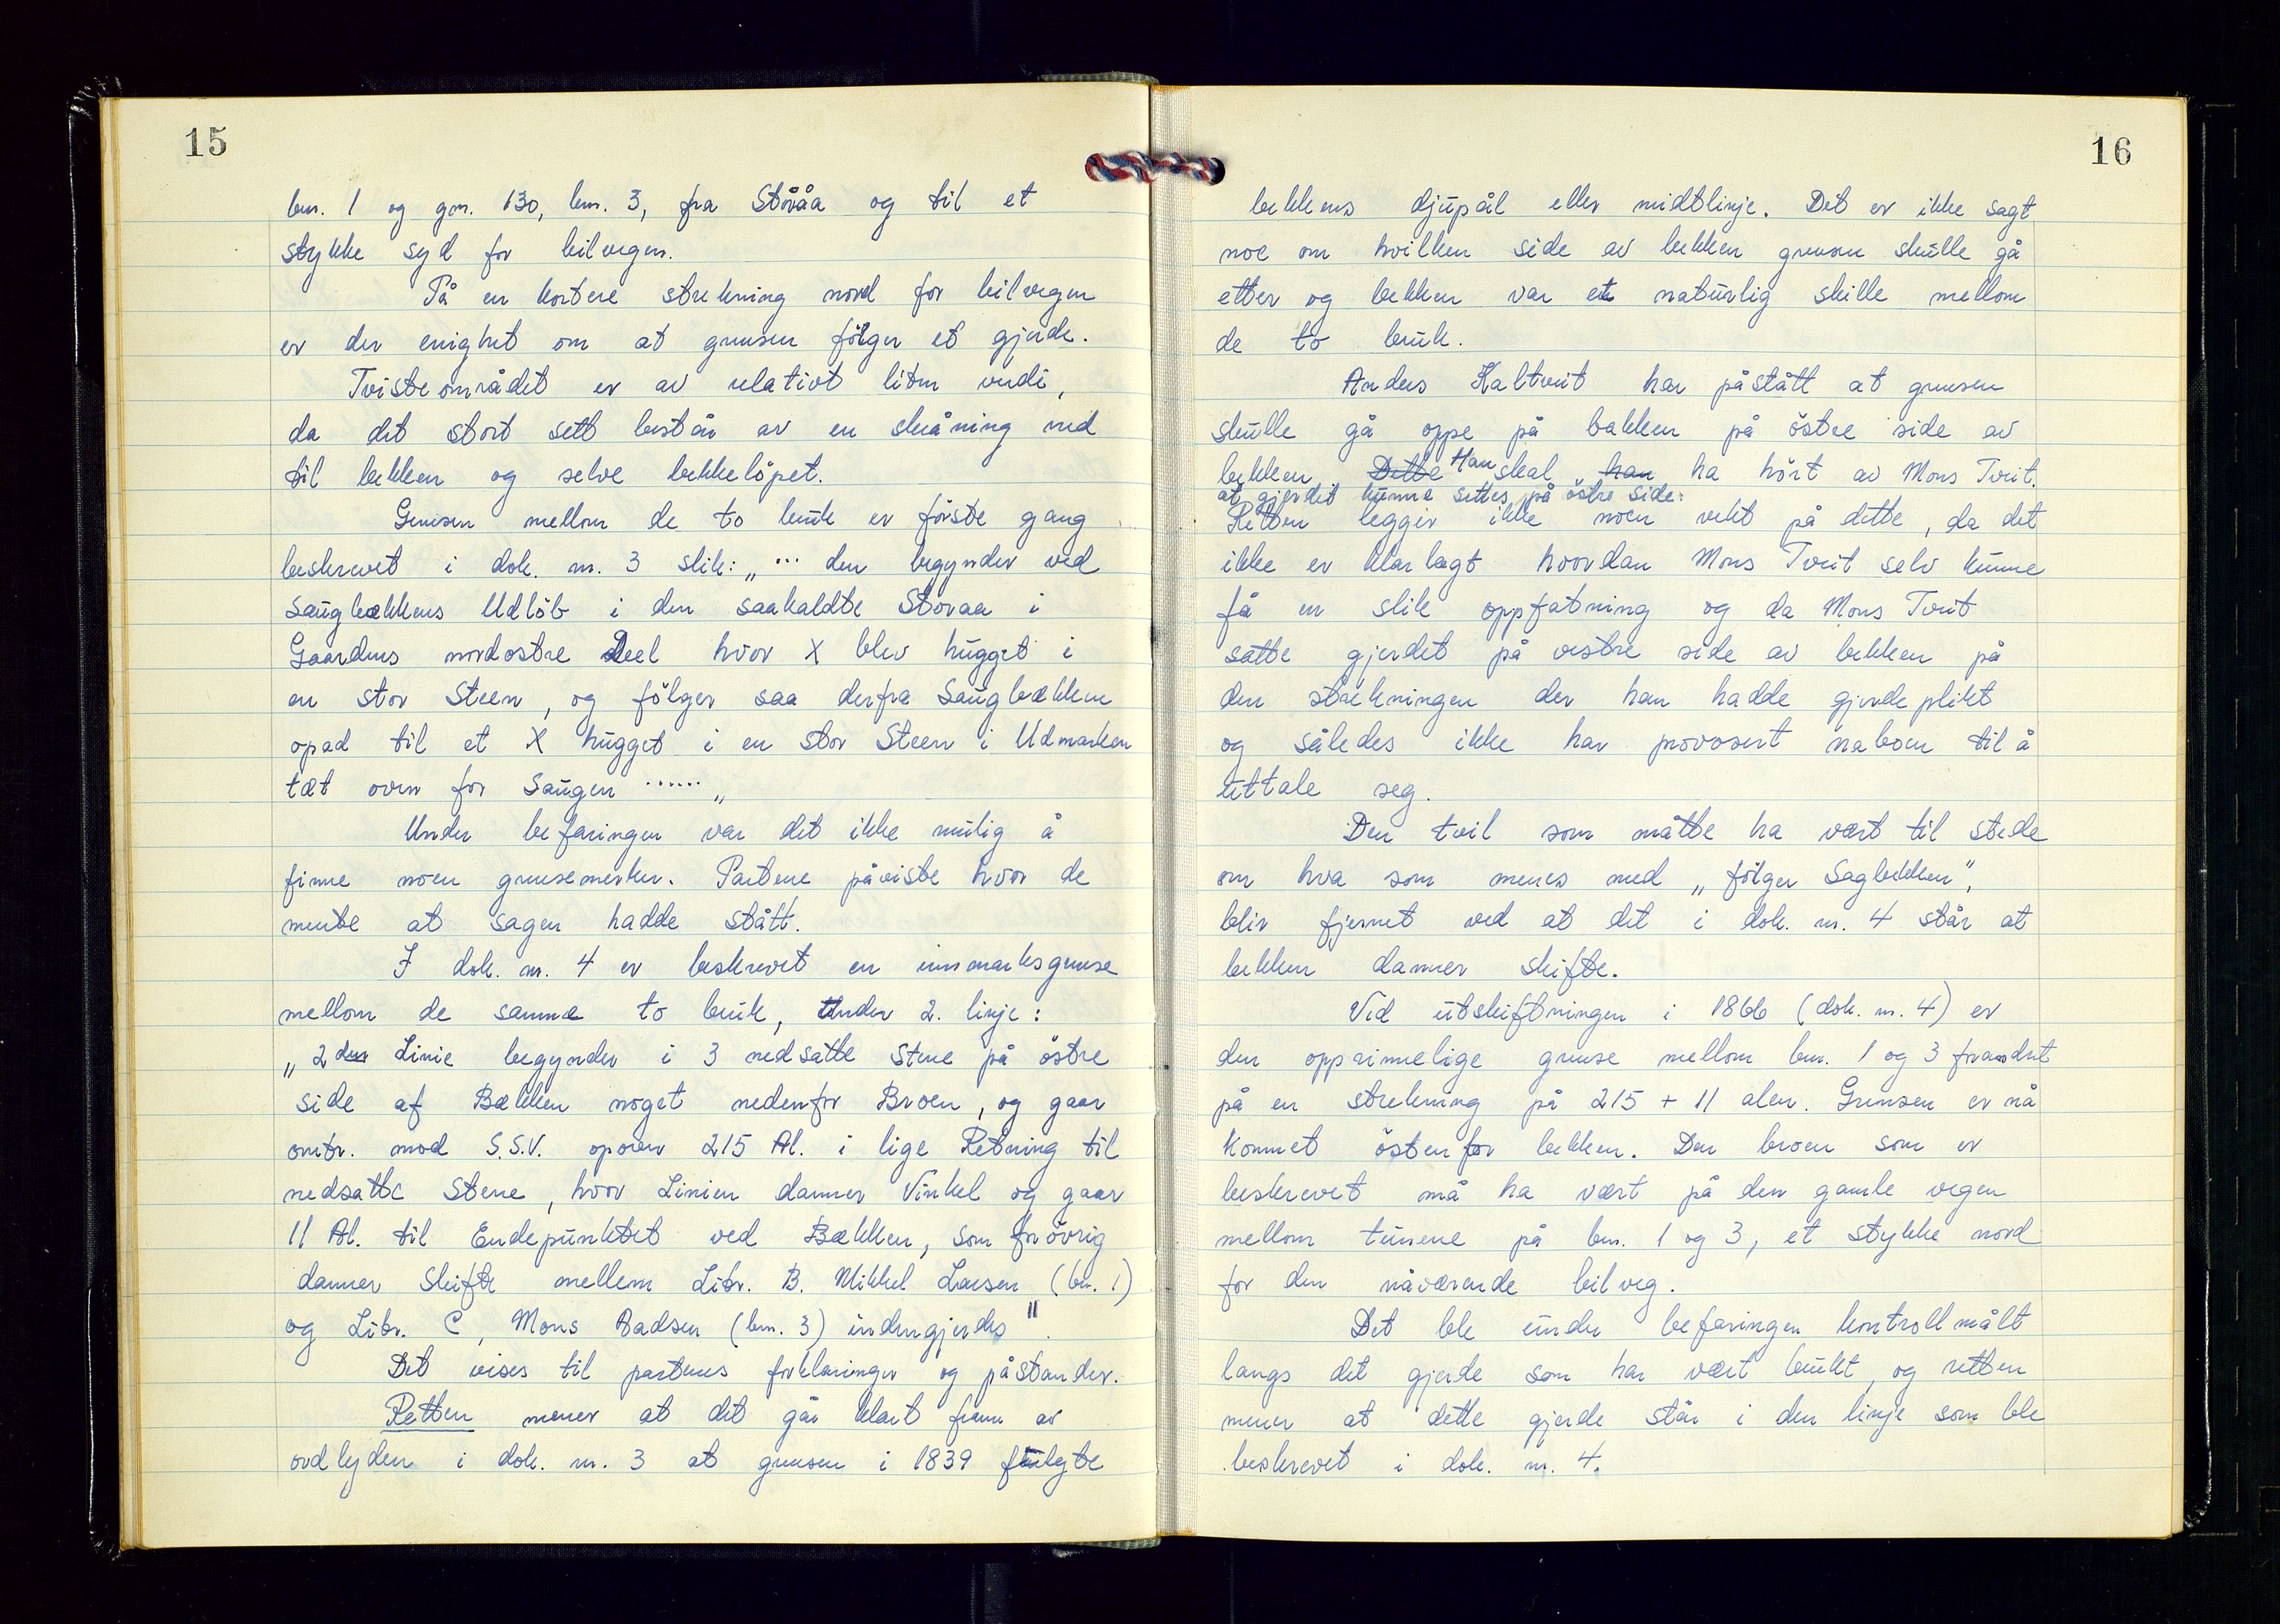 15
bnr. 1 og gnr. 130, bnr. 3, fra Storåa og til et
stykke syd for bilvegen.
På en kortere strekning nord for bilvegen
er der enighet om at grensen følger et gjerde.
Tvisteområdet er av relativt liten verdi,
da det stort sett består av en skråning ned
til bekken og selve bekkeløpet.
Grensen mellom de to bruk er første gang
beskrevet i dok. nr. 3 slik: „ ... den begynder ved
Saugbækkens Udløb i den saakaldte Storaa i
Gaardens nordostre Deel hvor X blev hugget i
en stor Steen, og følger saa derfra Saugbækken
opad til et X hugget i en stor Steen i Udmarken
tæt oven for Saugen ...... „
Under befaringen var det ikke mulig å
finne noen grensemerker. Partene påviste hvor de
mente at sagen hadde stått.
I dok. nr. 4 er beskrevet en innmarksgrense
mellom de samme to bruk, under 2. linje:
„ 2den Linie begynder i 3 nedsatte Stene på østre
side af Bækken noget nedenfor Broen, og gaar
omtr. mod S.S.V. opover 215 Al. i lige Retning til
nedsatte Stene, hvor Linien danner Vinkel og gaar
11 Al. til Endepunktet ved Bækken, som forøvrig
danner Skifte mellem Litr. B. Mikkel Larsen (bnr. 1)
og Litr. C, Mons Badsen (bnr. 3) indengjerdes".
Det vises til partenes forklaringer og påstander.
Retten mener at det går klart fram av
ordlyden i dok. nr. 3 at grensen i 1839 fulgte
16
bekkens djupål eller midtlinje. Det er ikke sagt
noe om hvilken side av bekken grensen skulle gå
etter og bekken var et naturlig skille mellom
de to bruk.
Anders Kaltveit har påstått at grensen
skulle gå oppe på bakken på østre side av
bekken. Dette Han skal han ha hørt av Mons Tveit.
at gjerdet kunne settes på østre side.
Retten legger ikke noen vekt på dette, da det
ikke er klarlagt hvordan Mons Tveit selv kunne
få en slik oppfatning og da Mons Tveit
satte gjerdet på vestre side av bekken på
den strekningen der han hadde gjerdeplikt
og således ikke har provosert naboen til å
uttale seg.
Den tvil som måtte ha vært til stede
om hva som menes med „ følger Sagbekken",
blir fjernet ved at det i dok. nr. 4 står at
bekken danner skifte.
Ved utskiftningen i 1866 (dok. nr. 4) er
den opprinnelige grense mellom bnr. 1 og 3 forandret
på en strekning på 215 + 11 alen. Grensen er nå
kommet østenfor bekken. Den broen som er
beskrevet må ha vært på den gamle vegen
mellom tunene på bnr. 1 og 3, et stykke nord
for den nåværende bilveg.
Det ble under befaringen kontrollmålt
langs det gjerde som har vært brukt, og retten
mener at dette gjerde står i den linje som ble
beskrevet i dok. nr. 4.